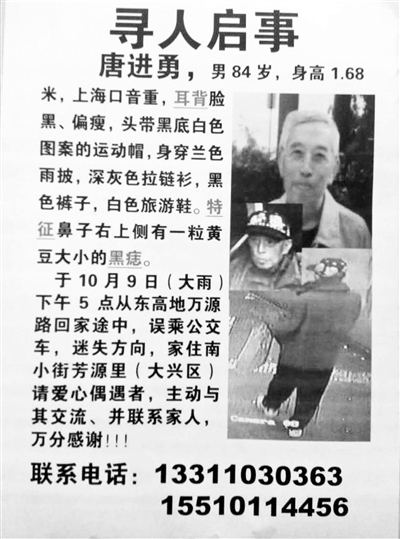 寻人启事
唐进勇，男84岁，身高1.68
米，上海口音重，耳背脸
黑、偏瘦，头带黑底白色
图案的运动帽，身穿兰色
雨披，深灰色拉链衫，黑
色裤子，白色旅游鞋。特
征鼻子右上侧有一粒黄
豆大小的黑痣。
于10月9日（大雨）
下午5点从东高地万源
路回家途中，误乘公交
车，迷失方向，家住南
小街芳源里（大兴区）
请爱心偶遇者，主动与
其交流、并联系家人，
万分感谢!!!
Camera 06
联系电话：13311030363
15510114456